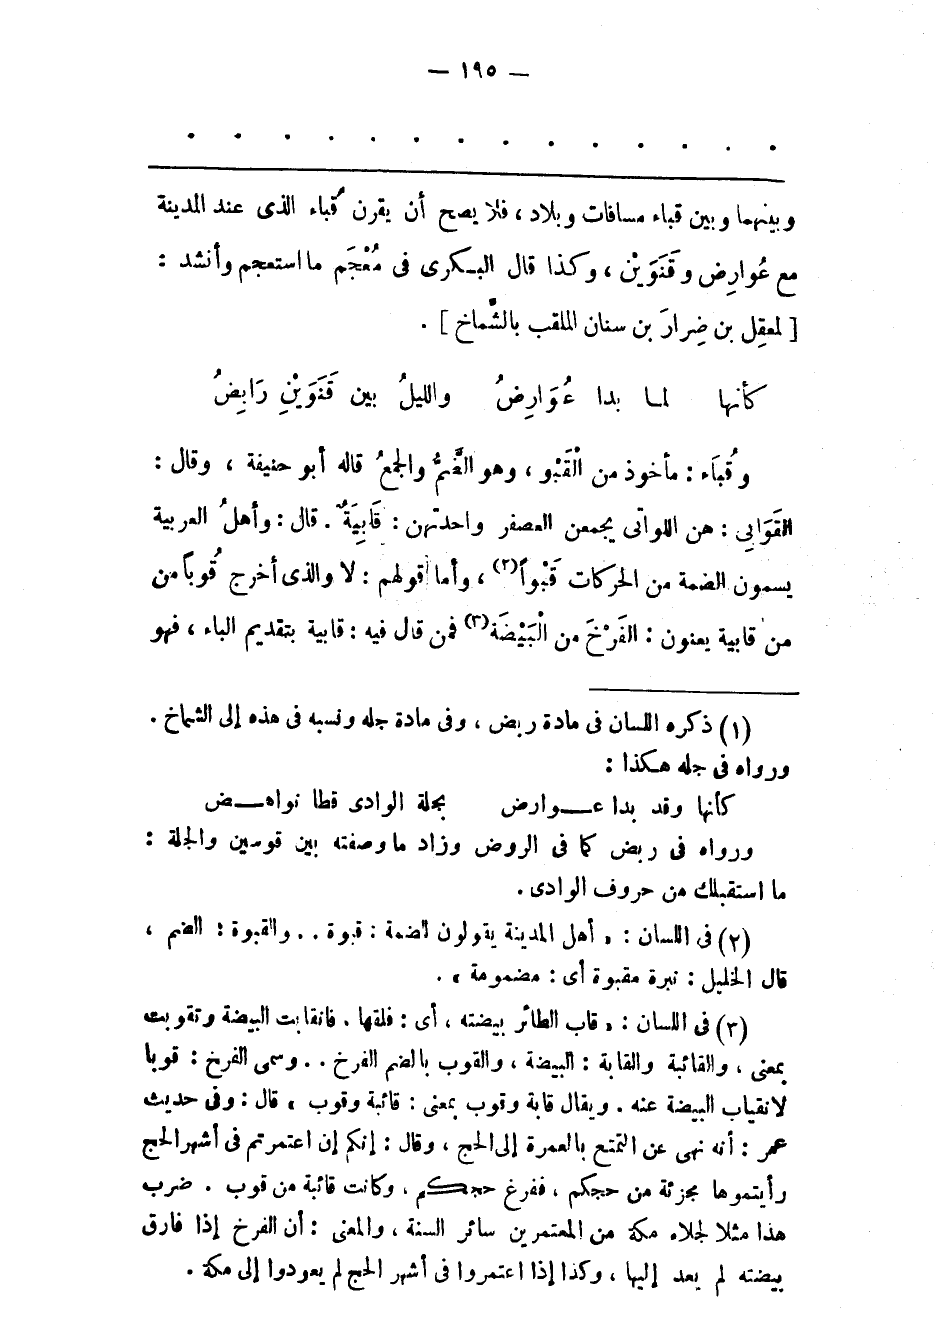 — ١٩٥ —
. . . . . . . . . . . . . .
وبينهما وبين قباء مسافات وبلاد ، فلا يصح أن يقرن قُباء الذى عند المدينة
مع عُوارِض وقَنَوَيْن ، وكذا قال البكرى فى مُعْجَم ما استعجم وأنشد :
[ لمعقِل بن ضِرارَ بن سنان الملقب بالشَّماخ ] .
كأنها لما بدا عُوَارِضُ والليلُ بين قَنَوَيْنِ رَابِضُ
وقُبَاء : مأخوذ من الْقَبْو ، وهو الضَّمُّ والجمعُ قاله أبو حنيفة ، وقال :
القَوَابِي : هن اللواتى يجمعن العصفر واحدتهن : قَابِيَةٌ . قال : وأهلُ العربية
يسمون الضمة من الحركات قَبْواً(٢) ، وأما قولهم : لا والذى أخرج قُوباً من
من قابية يعنون : الفَرْخَ من الْبَيْضَة(٣) فمن قال فيه : قابية بتقديم الباء ، فهو
(١) ذكره اللسان فى مادة ربض ، وفى مادة جله ونسبه فى هذه إلى الشماخ .
ورواه فى جله هكذا :
كأنها وقد بدا عـــوارض بجلة الوادى قطا نواهـــض
ورواه فى ربض كما فى الروض وزاد ما وصفته بين قوسين والجلة :
ما استقبلك من حروف الوادى .
(٢) فى اللسان : « أهل المدينة يقولون لضمة : قبوة . . والقبوة : الضم ،
قال الخليل : نبرة مقبوة أى : مضمومة » .
(٣) فى اللسان : « قاب الطائر بيضته ، أى : فلقها . فانقابت البيضة وتقوبت
بمعنى ، والقائبة والقابة : البيضة ، والقوب بالضم الفرخ . . وسمى الفرخ : قوبا
لانقياب البيضة عنه . ويقال قابة وقوب بمعنى : قائبة وقوب » قال : وفى حديث
عمر : أنه نهى عن التمتع بالعمرة إلى الحج ، وقال : إنكم إن اعتمرتم فى أشهر الحج
رأيتموها مجزئة من حجكم ، ففرغ حجكم ، وكانت قائبة من قوب . ضرب
هذا مثلا لخلاء مكة من المعتمرين سائر السنة ، والمعنى : أن الفرخ إذا فارق
بيضته لم يعد إليها ، وكذا إذا اعتمروا فى أشهر الحج لم يعودوا إلى مكة .